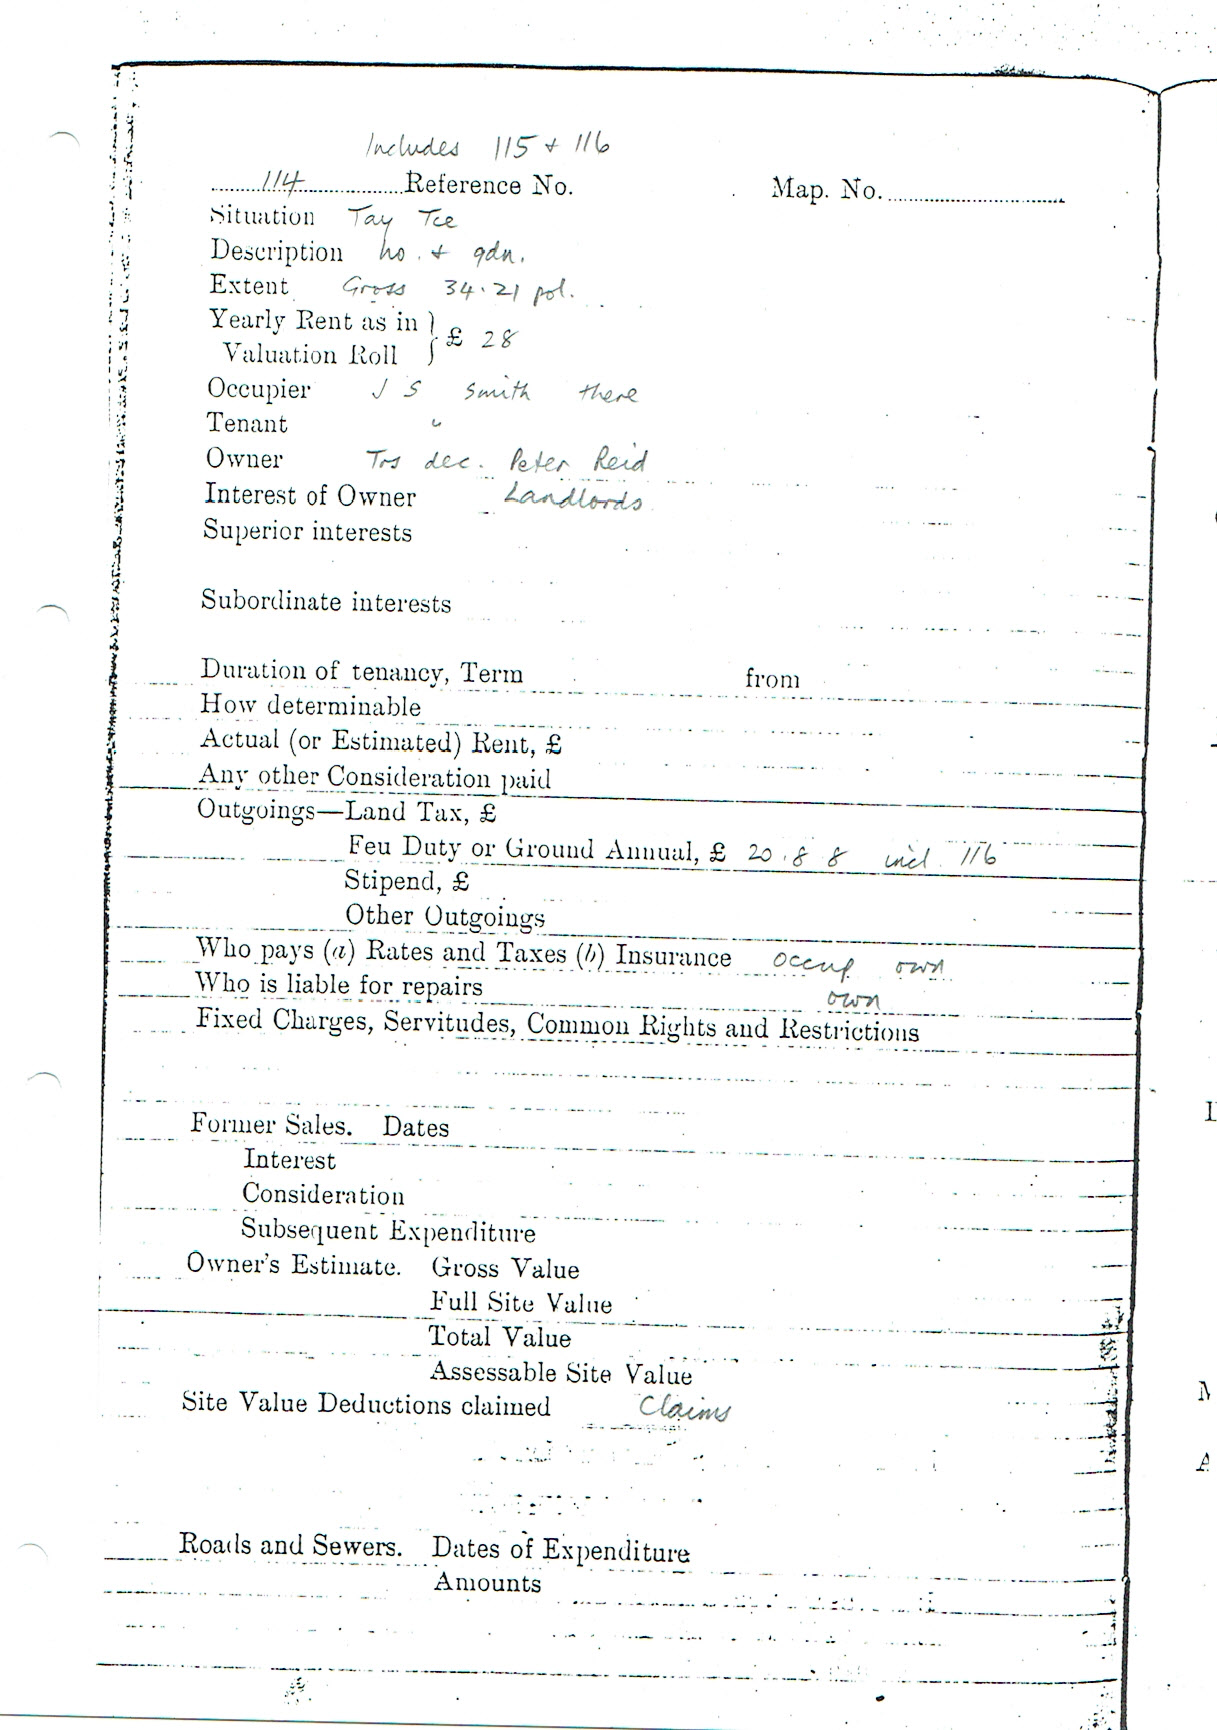 Includes 115 + 116
114 Reference No. Map. No.
Situation Tay Tce
Description ho. + gdn.
Extent Gross 34.21 pol.
Yearly Rent as in } £ 28
Valuation Roll
Occupier J S Smith there
Tenant "
Owner Trs dec. Peter Reid
Interest of Owner Landlords
Superior interests
Subordinate interests
Duration of tenancy, Term from
How determinable
Actual (or Estimated) Rent, £
Any other Consideration paid
Outgoings—Land Tax, £
Feu Duty or Ground Annual, £ 20.8 8 incl. 116
Stipend, £
Other Outgoings
Who pays (a) Rates and Taxes (b) Insurance occup own
Who is liable for repairs own
Fixed Charges, Servitudes, Common Rights and Restrictions
Former Sales. Dates
Interest
Consideration
Subsequent Expenditure
Owner's Estimate. Gross Value
Full Site Value
Total Value
Assessable Site Value
Site Value Deductions claimed Claims
Roads and Sewers. Dates of Expenditure
Amounts